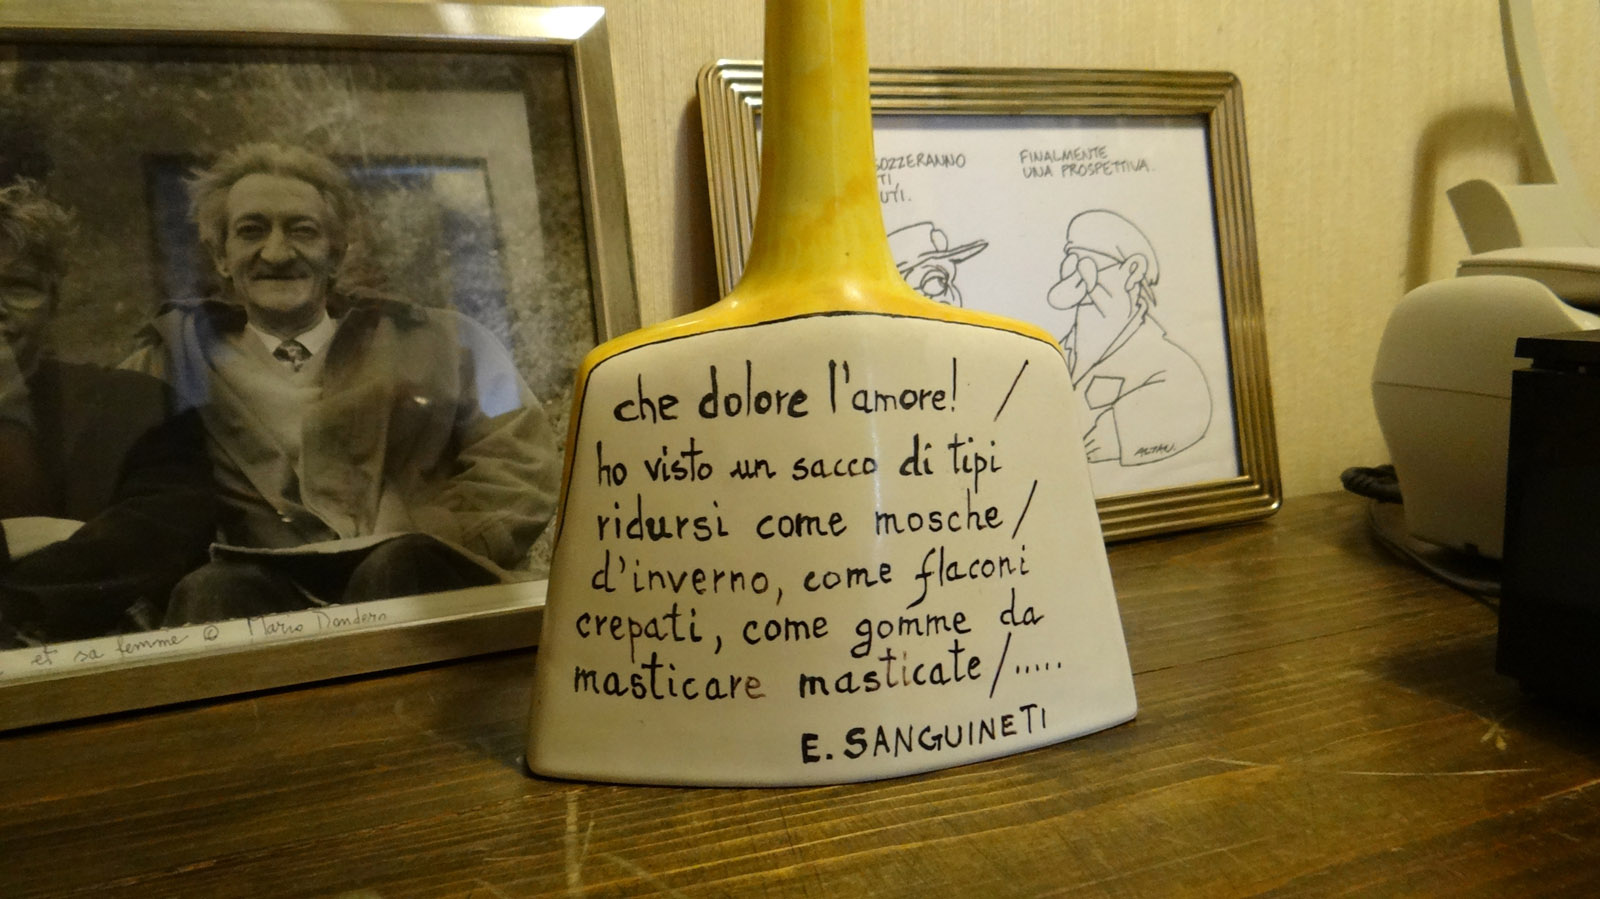 SOZZERANNO
TI
UTI.
FINALMENTE
UNA PROSPETTIVA.
ALTAN.
che dolore l'amore! /
ho visto un sacco di tipi
ridursi come mosche /
d'inverno, come flaconi
crepati, come gomme da
masticare masticate /.....
E. SANGUINETI
et sa femme © Mario Dondero